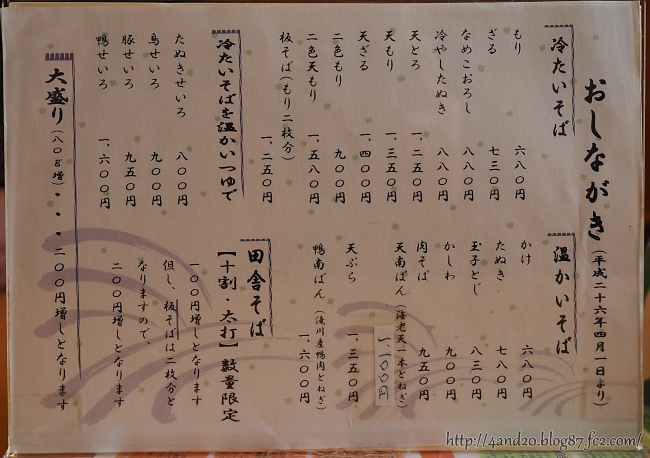 おしながき（平成二十六年四月一日より）
冷たいそば
もり 六八〇円
ざる 七三〇円
なめこおろし 八八〇円
冷やしたぬき 八八〇円
天とろ 一、二五〇円
天もり 一、三五〇円
天ざる 一、四〇〇円
二色もり 九〇〇円
二色天もり 一、五八〇円
板そば（もり二枚分） 一、二五〇円
冷たいそばを温かいつゆで
たぬきせいろ 八〇〇円
鳥せいろ 九〇〇円
豚せいろ 九五〇円
鴨せいろ 一、六〇〇円
温かいそば
かけ 六八〇円
たぬき 七八〇円
玉子とじ 八三〇円
かしわ 九〇〇円
肉そば 九五〇円
天南ばん（海老天一本とねぎ） 一、一〇〇円
天ぷら 一、三五〇円
鴨南ばん（滝川産鴨肉とねぎ） 一、六〇〇円
田舎そば
【十割・太打】数量限定
一〇〇円増しとなります
但し、板そばは二枚分と
なりますので、
二〇〇円増しとなります
大盛り（八〇g増）・・・二〇〇円増しとなります
http://4and20.blog87.fc2.com/